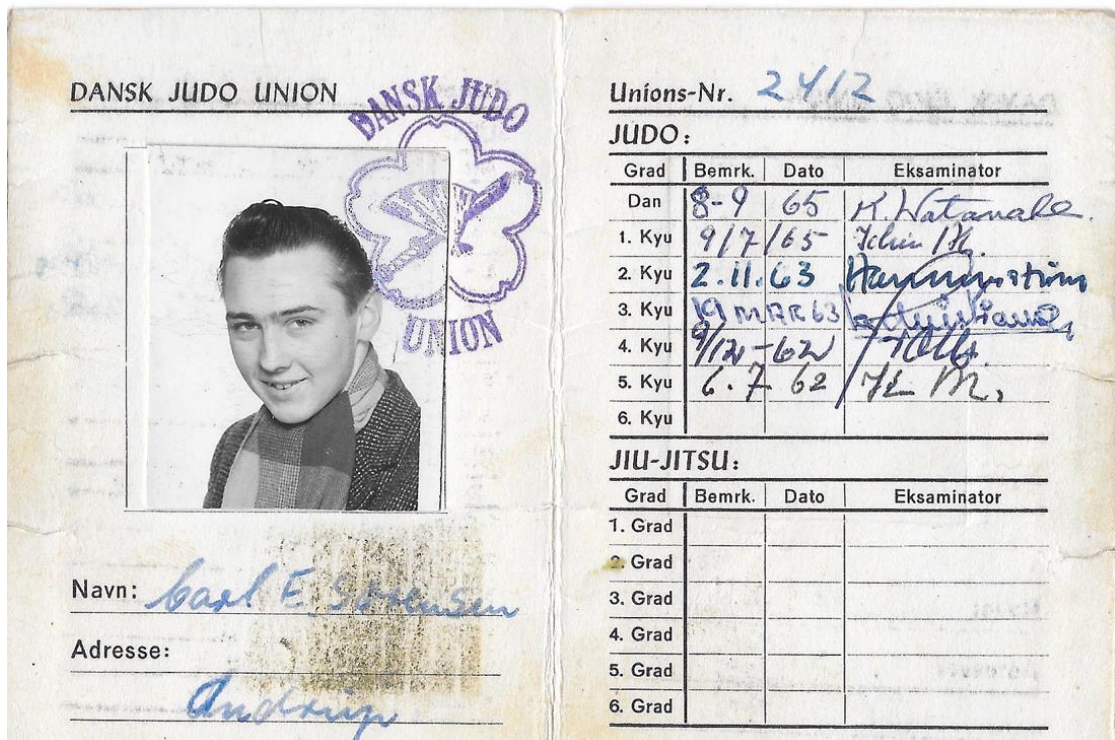 DANSK JUDO UNION
DANSK JUDO
UNION
Navn: Carl E. Sørensen
Adresse:
Andrup
Unions-Nr. 2412
JUDO:
Grad Bemrk. Dato Eksaminator
Dan 8-9 65 K. Watanabe
1. Kyu 9/7/65
2. Kyu 2.11.63
3. Kyu 19 MAR 63
4. Kyu 9/12-62
5. Kyu 6.7 62
6. Kyu
JIU-JITSU:
Grad Bemrk. Dato Eksaminator
1. Grad
2. Grad
3. Grad
4. Grad
5. Grad
6. Grad